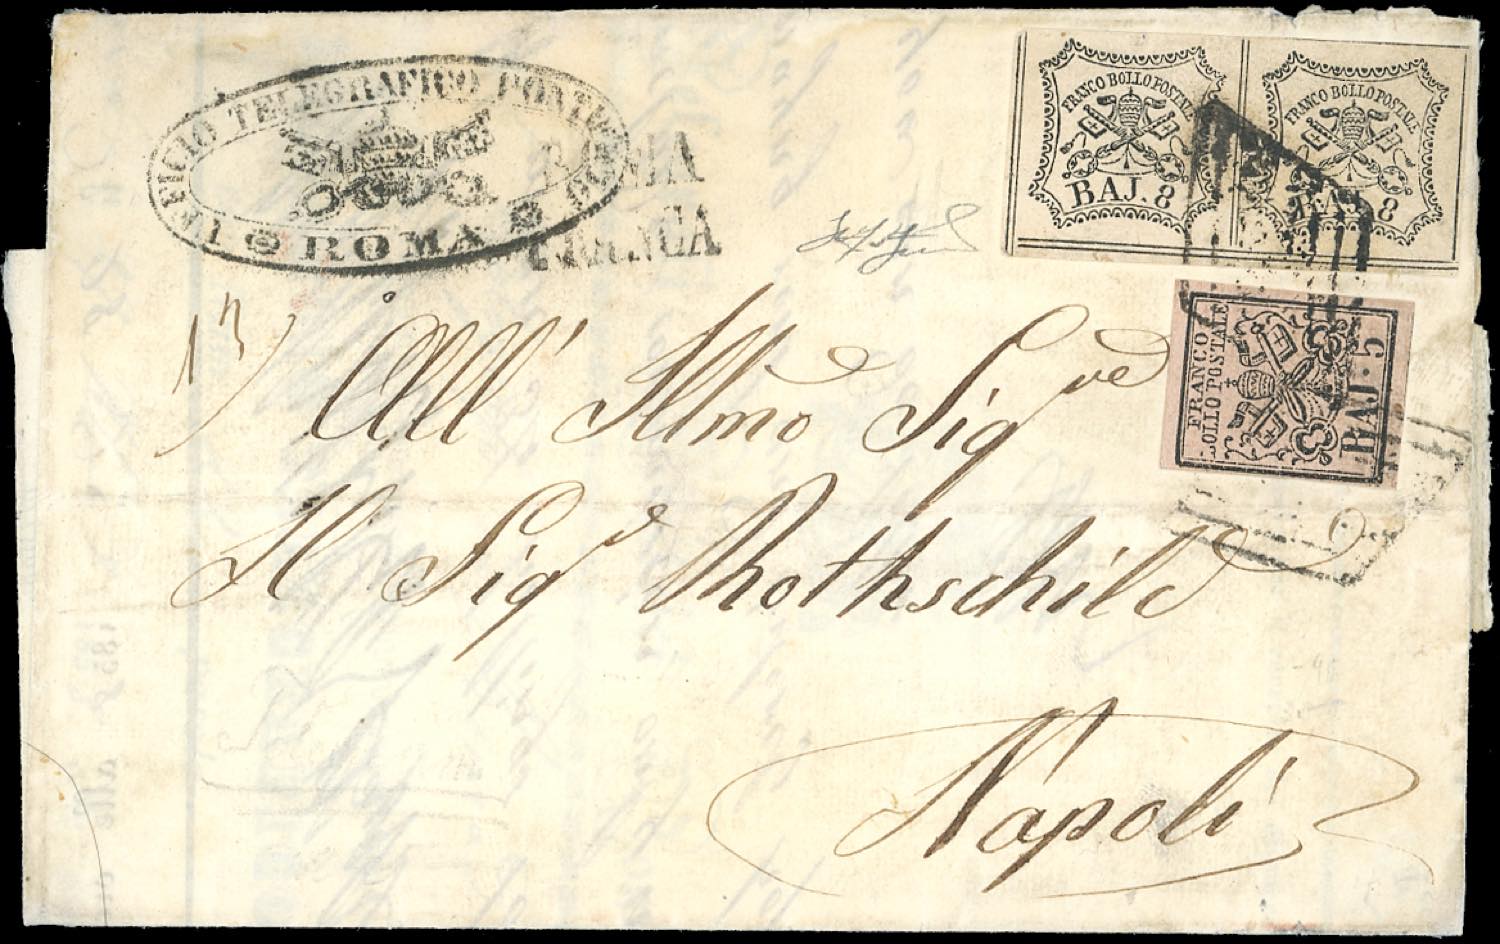 UFFICIO TELEGRAFICO PONTIFICIO
ROMA
ROMA
FRANCA
FRANCO BOLLO POSTALE
BAJ. 8
FRANCO BOLLO POSTALE
BAJ. 8
FRANCO
BOLLO POSTALE
BAJ: 5
All' Illmo Sig.re
Il Sig.e Rothschild
Napoli